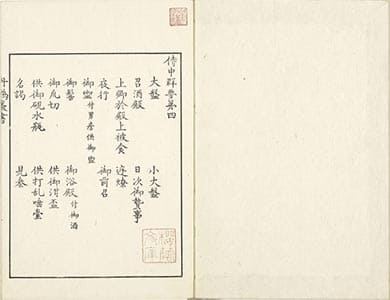 侍中群要第四
大盤 小大盤
召酒殿 日次御贄事
上卿於殿上被食
夜行 御前名
御盥 付男房供御盥
御鬢 御浴殿 付御酒
御爪切 供御泔盃
供御硯水瓶 供打乱
名謁 見参
丹鶴叢書